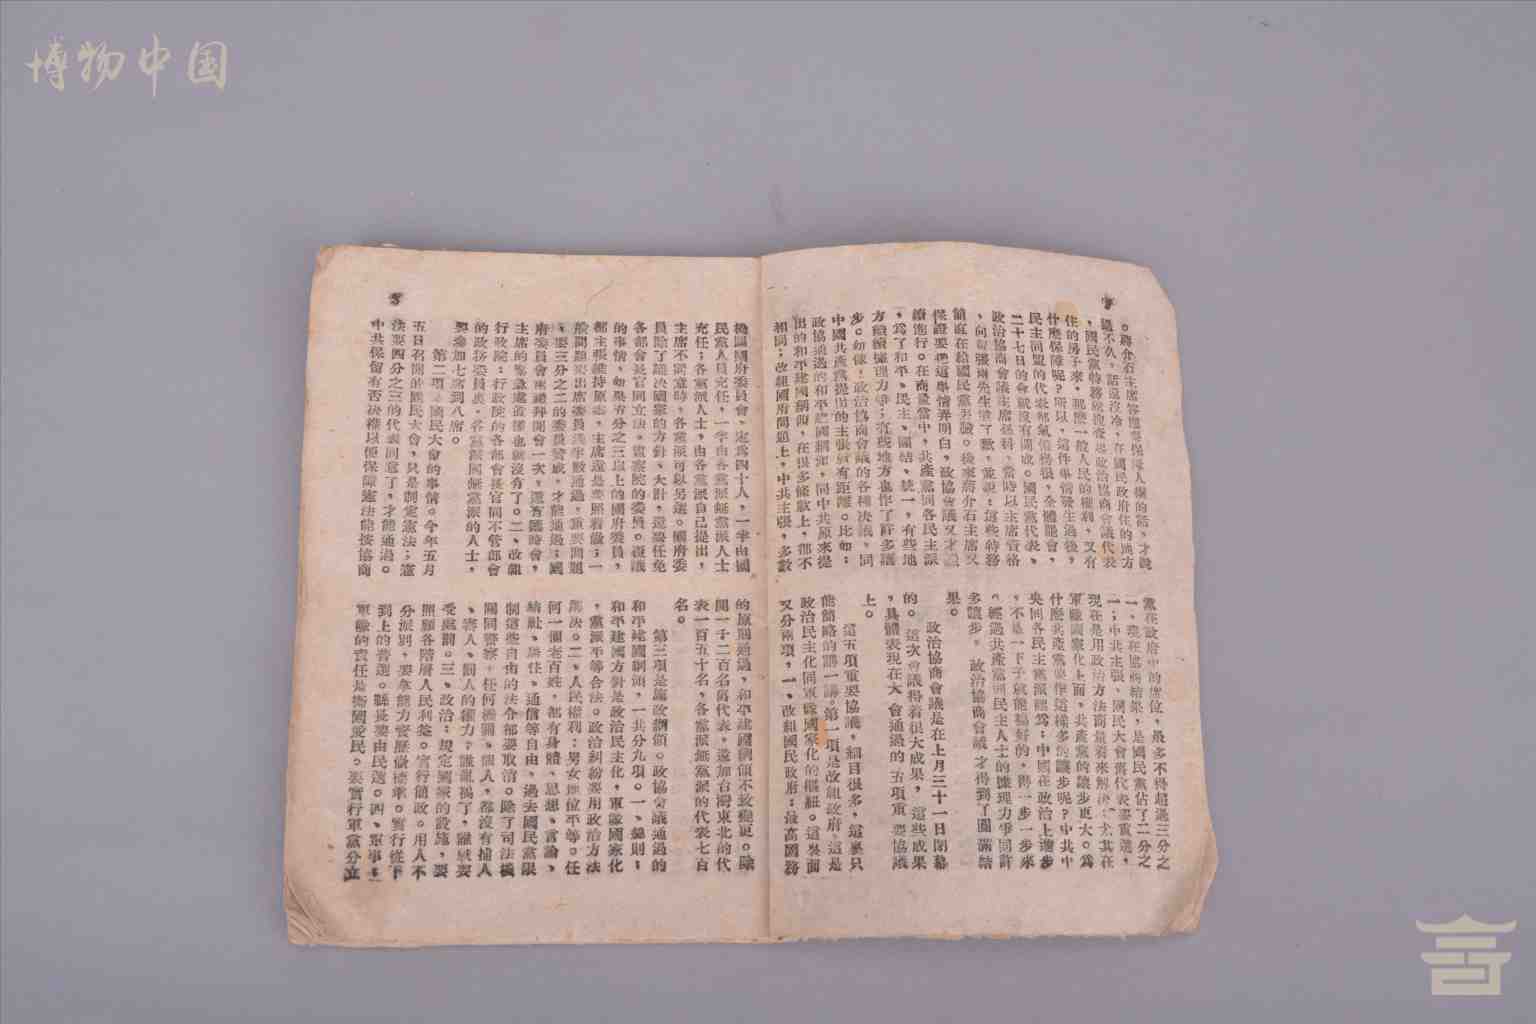 博物中国
。蔣介石主席答應要保障人權的話,才說
過不久,話還沒冷,在國民政府住的地方
,國民黨特務就搜查起政治協商會議代表
住的房子來,那麼一般人民的權利,又有
什麼保障呢?所以,這件事情發生過後,
民主同盟的代表都氣憤得很,全體罷會,
二十七日的會就沒有開成。國民黨代表、
政治協商會議主席孫科,當時以主席資格
,向黃張兩先生道了歉,並說:這些特務
在給國民黨丟臉。後來蔣介石主席又
保證要把這事情弄明白,政協會議又才繼
續進行。在商量當中,共產黨同各民主派
,爲了和平、民主、團結、統一,有些地
方繼續據理力爭;有些地方也作了許多讓
步。好像!政治協商會議的各種決議,同
中國共產黨提出的主張就有距離。比如:
政協通過的和平建國綱領,同中共原來提
出的和平建國綱領,在很多條款上,都不
相同;改組國府問題上,中共主張,多數
黨在政府中的席位,最多不得超過三分之
一,現在協商結果,是國民黨佔了二分之
一;中共主張、國民大會舊代表要重選,
現在是用政治方法商量着來解決;尤其在
軍隊國家化上面,共產黨的讓步更大。爲
什麼共產黨要作這樣多的讓步呢?中共中
央同各民主黨派認爲:中國在政治上進步
,不是一下子就能搞好的,得一步一步來
。經過共產黨同民主人士的據理力爭同許
多讓步。政治協商會議才得到了圓滿結
果。
政治協商會議是在上月三十一日閉幕
的。這次會議得着很大成果,這些成果
,具體表現在大會通過的五項重要協議
上。
這五項重要協議,細目很多,這裏只
能簡略的講一講。第一項是改組政府,這是
政治民主化同軍隊國家化的樞紐。這裏面
又分兩項,一、改組國民政府:最高國務
機關國府委員會,定爲四十人,一半由國
民黨人員充任,一半由各黨派無黨派人士
充任;各黨派人士,由各黨派自己提出,
主席不同意時,各黨派可以另選。國府委
員除了議決國家的方針、大計,還要任免
各部會長官同立法、監察院的委員。複議
的事情,如果有五分之三以上的國府委員,
都主張維持原案,主席還是要照着做;一
般問題要出席委員過半數通過,重要問題
,要三分之二的委員贊成,才能通過;國
府委員會兩禮拜開會一次,還有臨時會,
主席的緊急處置權也就沒有了。二、改組
行政院:行政院的各部會長官同不管部會
的政務委員裏,各黨派同無黨派的人士,
要參加七席到八席。
第二項,國民大會的事情。今年五月
五日召開的國民大會,只是制定憲法;憲
法要四分之三的代表同意了,才能通過。
中共保留有否決權以便保障憲法能按協商
的原則通過,和平建國綱領不致變更。除
開一千二百名舊代表,還加台灣東北的代
表一百五十名,各黨派無黨派的代表七百
名。
第三項是施政綱領。政協會議通過的
和平建國綱領,一共分九項。一、總則;
和平建國方針是政治民主化,軍隊國家化
,黨派平等合法。政治糾紛要用政治方法
解決。二、人民權利;男女地位平等。任
何一個老百姓,都有身體、思想、言論、
結社、居住、通信等自由,過去國民黨限
制這些自由的法令都要取消。除了司法機
關同警察,任何機關,個人,都沒有捕人
、審人、罰人的權力,誰亂搞了,誰就要
受處罰。三、政治;規定國家的設施,要
照顧各階層人民利益。實行簡政。用人不
分派別,要拿能力資歷做標準。實行從下
到上的普選。縣長要由民選。四、軍事;
軍隊的責任是衛國愛民。要實行軍黨分立